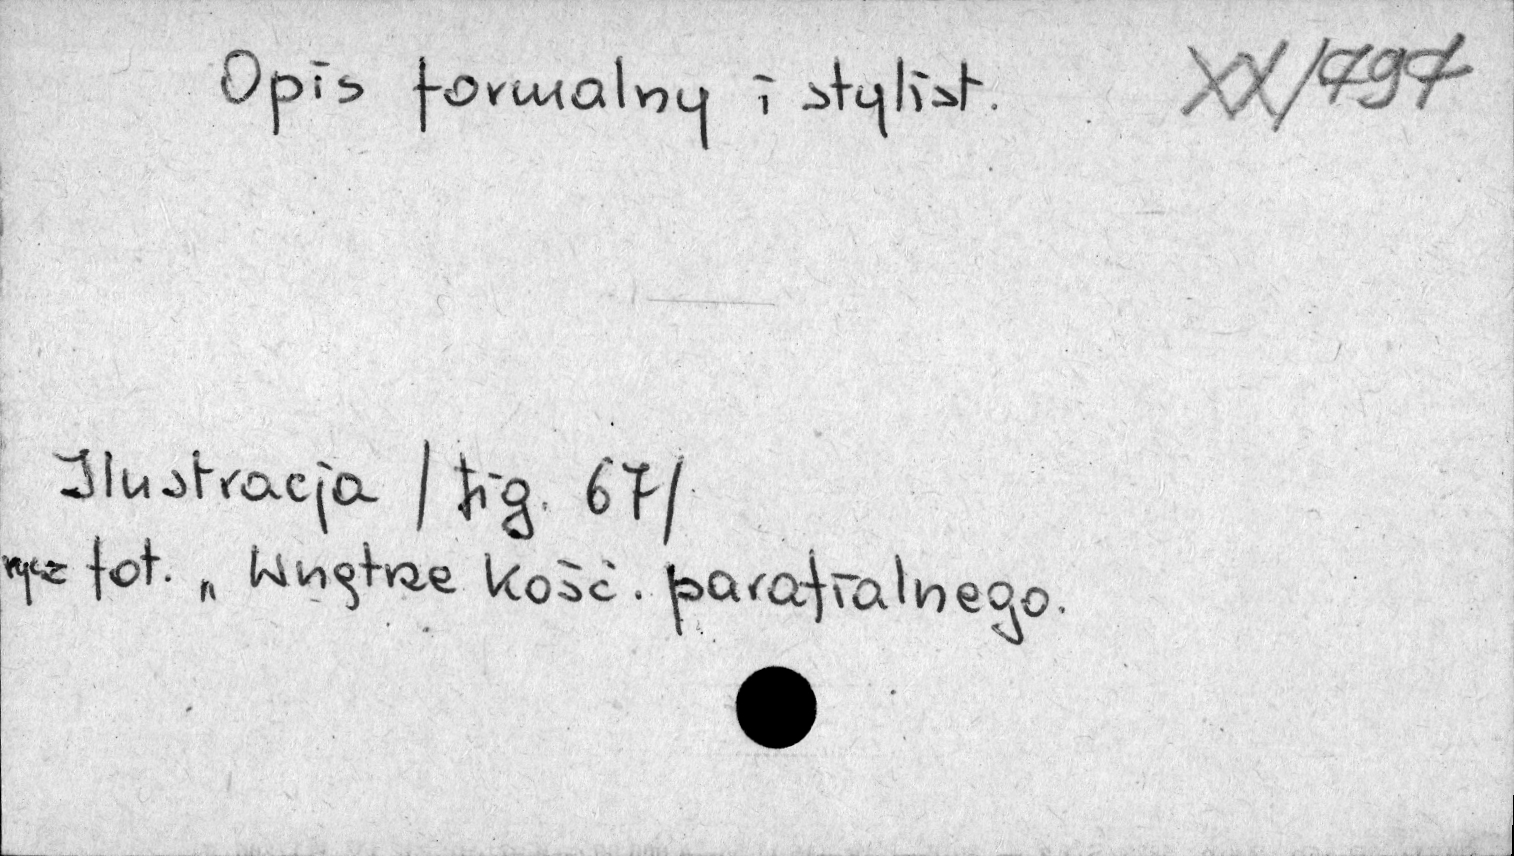 Opis formalny i stylist. XX/797
Ilustracja /fig. 67/
fot. „ Wnętrze Kość. parafialnego.